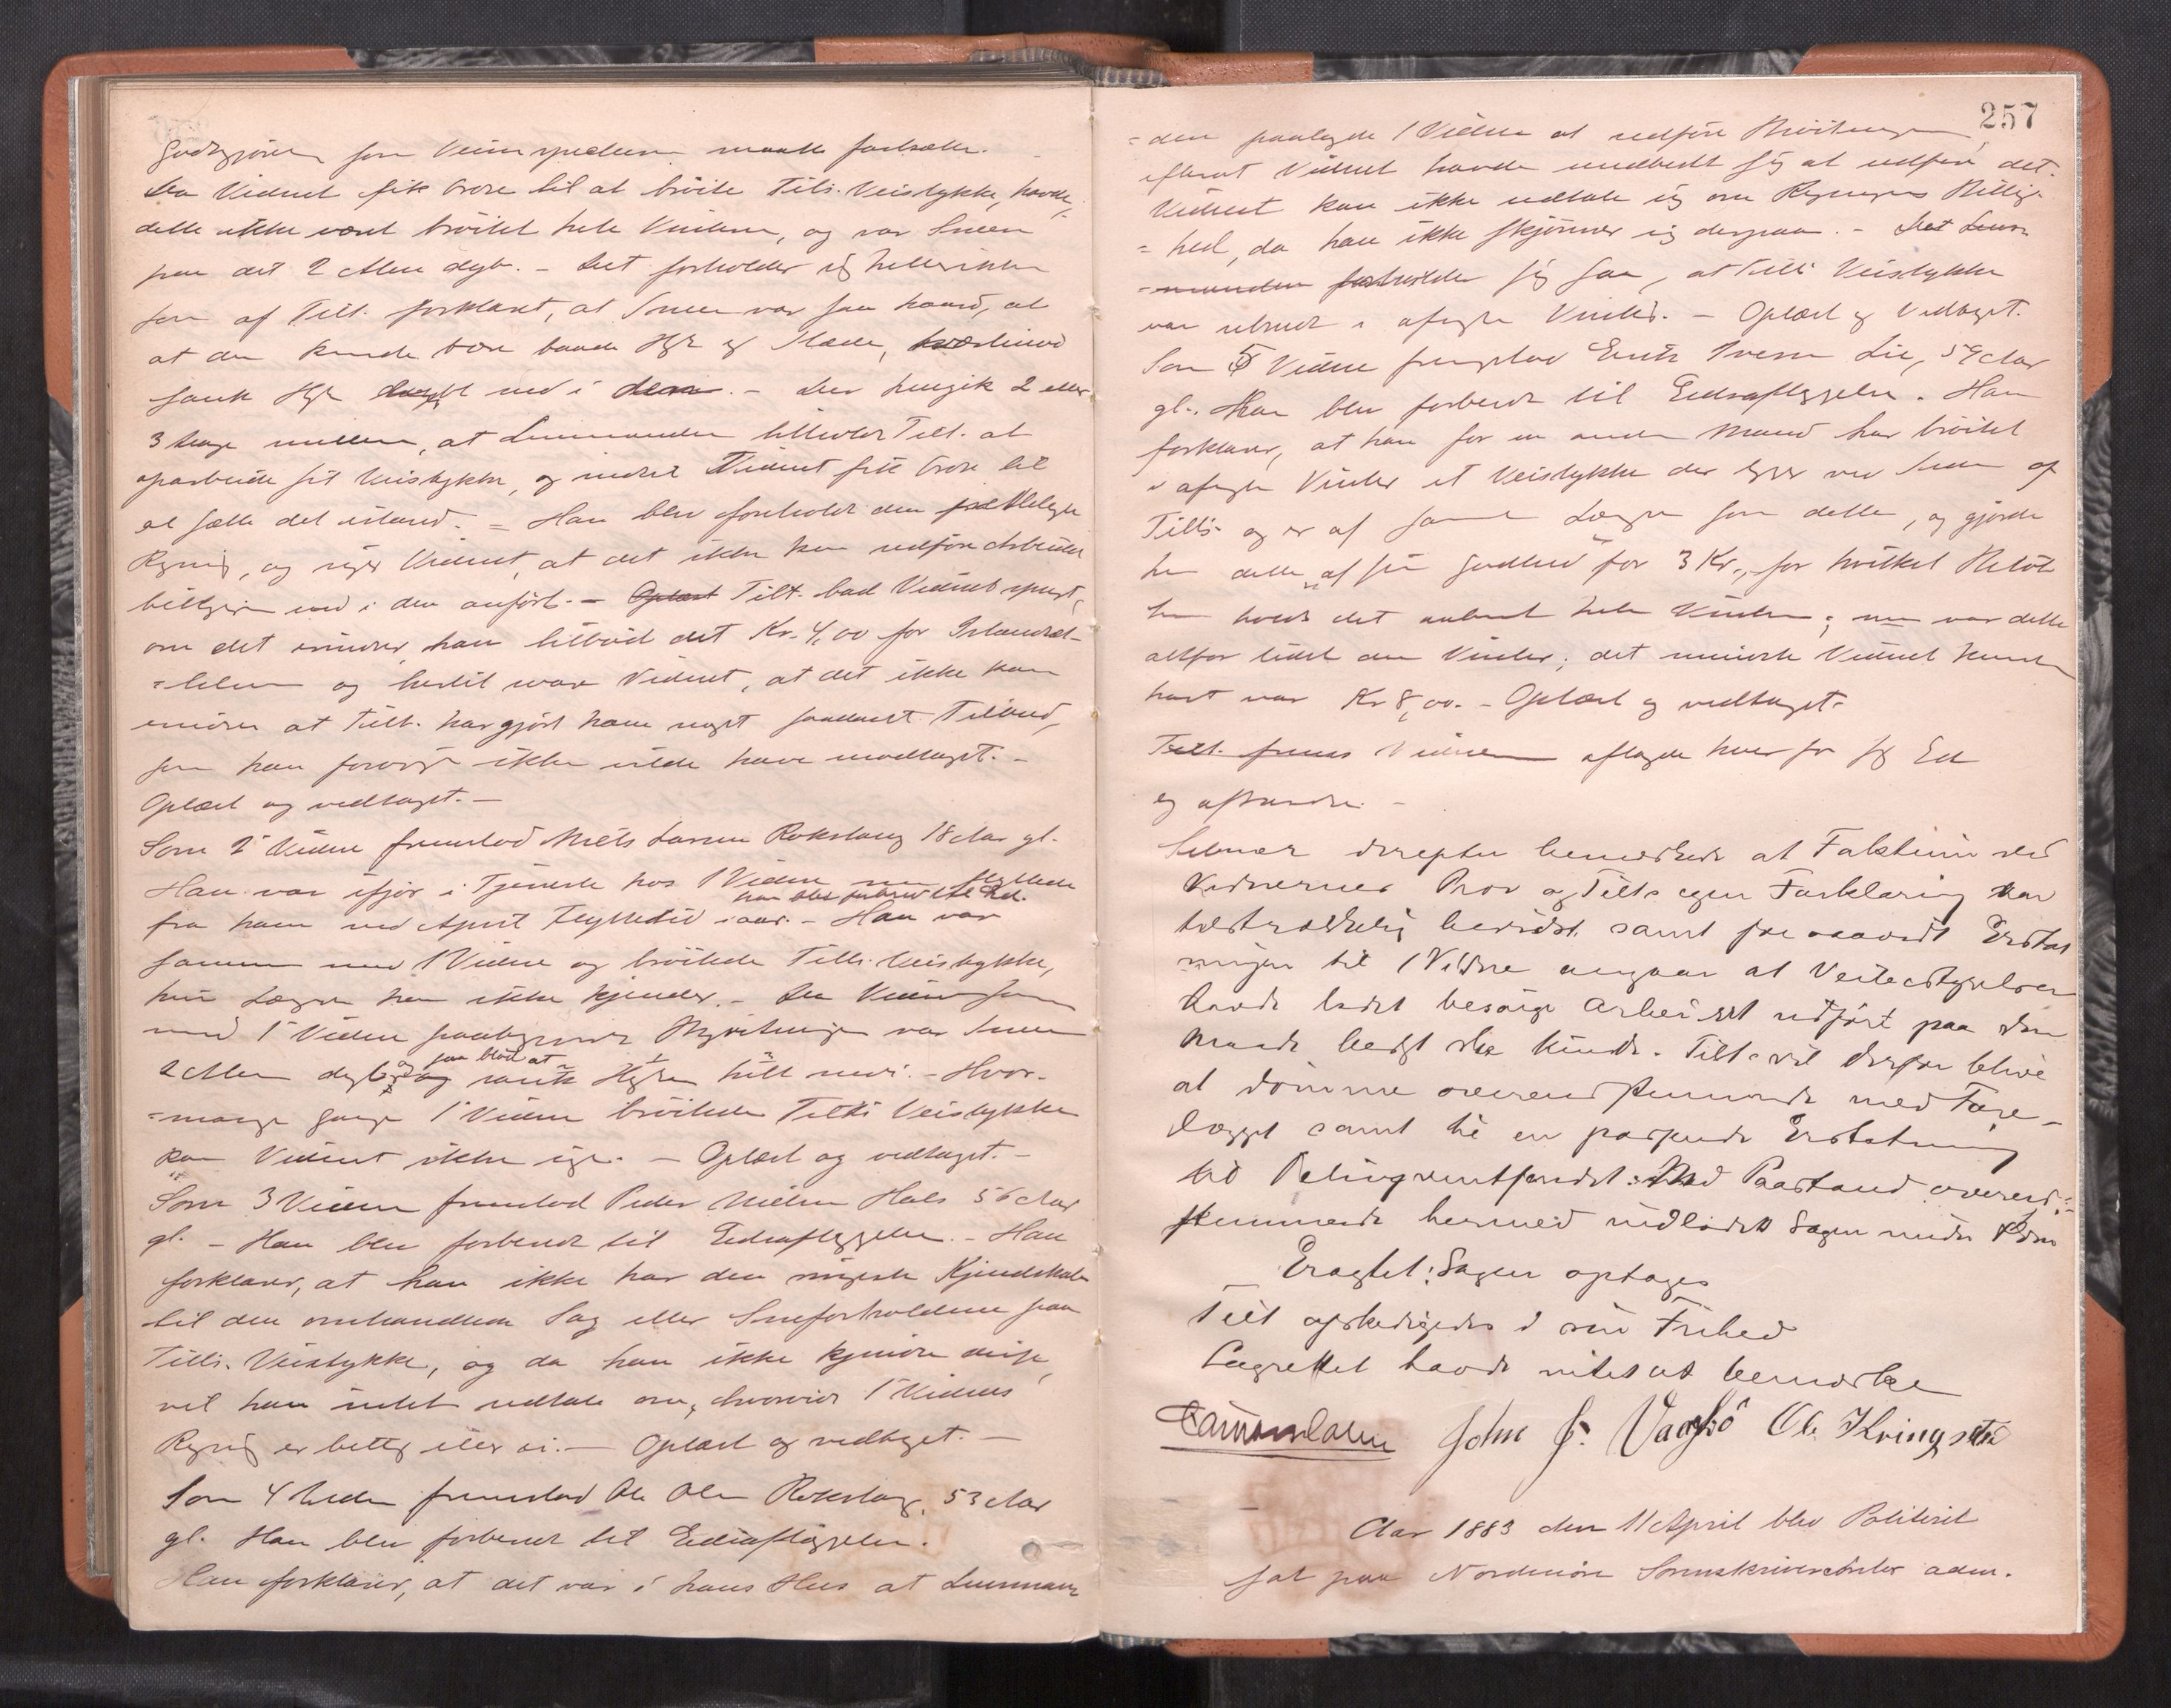 Godtgjörelse som Veiinspecteuren maatte fastsætte. -
Da Vidnet fik Ordre til at bröite Tilt.s Veistykke, havde
dette ikke været bröitet hele Vinteren, og var Sneen
paa det 2 Alen dyb. - Det forholder sig heller ikke
som af Tilt. forklaret, at Sneen var saa haard, at
at den kunde bære baade Hest og Slæde, tværtimod
sank Hesten dybt ned i den. - Der hengik 2 eller
3 Dage imellem, at Lensmanden tilholdt Tilt. at
oparbeide sit Veistykke, og indtil Vidnet fik Ordre til
at sætte det istand. = Han blev foreholdt den fremlagte
Regning, og siger Vidnet, at det ikke kan udföre Arbeidet
billigere end i den anfört. - Oplæst Tilt. bad Vidnet spurgt,
om det erindrer, han tilböd det Kr. 4,00 for Istandsæt-
=telsen og hertil svarer Vidnet, at det ikke kan
erindre at Tilt. har gjört ham noget saadant Tilbud,
som han forövrigt ikke vilde have modtaget. -
Oplæst og vedtaget. -
Som 2 Vidne fremstod Niels Larsen Rokstang 18 Aar gl.
Han var ifjor i Tjeneste hos 1 Vidne men flyttede
han blev forberedt til Ed.
fra ham ved April Flyttetid iaar. - Han var
sammen med 1 Vidne og bröitede Tilt.s Veistykke,
hvis Længde han ikke kjender. - Da Vidnet sammen
med 1 Vidne paabegyndte Bröitningen var Sneen
saa blöd at
2 Alen dyb og og sank Hesten helt nedi. - Hvor-
=mange Gange 1 Vidne bröitede Tilt.s Veistykke
kan Vidnet ikke sige. - Oplæst og vedtaget. -
Som 3 Vidne fremstod Peder Nielsen Hals 56 Aar
gl. - Han blev forberedt til Edsaflæggelse. - Han
forklarer, at han ikke har den ringeste Kjendskab
til den omhandlede Sag eller Sneforholdene paa
Tilt.s Veistykke, og da han ikke kjender disse,
vil han intet udtale om, hvorvidt 1 Vidnes
Regning er billig eller ei. - Oplæst og vedtaget. -
Som 4 Vidne fremstod Ole Olsen Rokstang, 53 Aar
gl. Han blev forberedt til Edsaflæggelse.
Han forklarer, at det var i hans Hus at Lensman-
257
=den paalagde 1 Vidne at udföre Bröitningen
efterat Vidnet havde undbedt sig at udföre det.
Vidnet kan ikke udtale sig om Regningens Billig-
=hed, da han ikke skjönner sig derpaa. - Det Lens-
=manden forholder sig saa, at Tilt.s Veistykke
var ubrudt i afvigte Vinter. - Oplæst og Vedtaget.
Som 5 Vidne fremstod Erik Iversen Lie, 59 Aar
gl. Han blev forberedt til Edsaflæggelse. Han
forklarer, at han for en anden Mand har bröitet
i afvigte Vinter et Veistykke der ligger ved Siden af
Tilt.s og er af samme Længde som dette, og gjorde
han dette "af sin Godhed" for 3 Kr., for hvilket Belöb
han holdt det aabent hele Vinteren; men var dette
altfor lidet den Vinter; det mindste Vidnet kunde
havt var Kr 8,00. - Oplæst og vedtaget.
Tilt. frems Vidnerne aflagde hver for sig Ed
og aftraadte. -
Aktor derefter bemærkede at Faktum ved
Vidnernes Prov og Tilts egen Forklaring var
tilstrækkelig bevist samt for saavidt Erstat
ningen til 1 Vidne angaar at Veibestyrelsen
havde ladet besörge Arbeidet udfört paa den
Maade bedst ske kunde. Tilt. vil derfor blive
at dömme overensstemmende med Fore-
lægget samt til en passende Erstatning
til Delinqventfondet. Med Paastand overens-
stemmende hermed indlodes Sagen under Dom
Eragtet: Sagen optages
Tilt afskedigedes i sin Frihed
Lagrettet havde intet at bemærke
John J. Vaagbö Ole Kringseth
Aar 1883 den 11 April blev Politiret
sat paa Nordmöre Sorenskriverkontor adm.